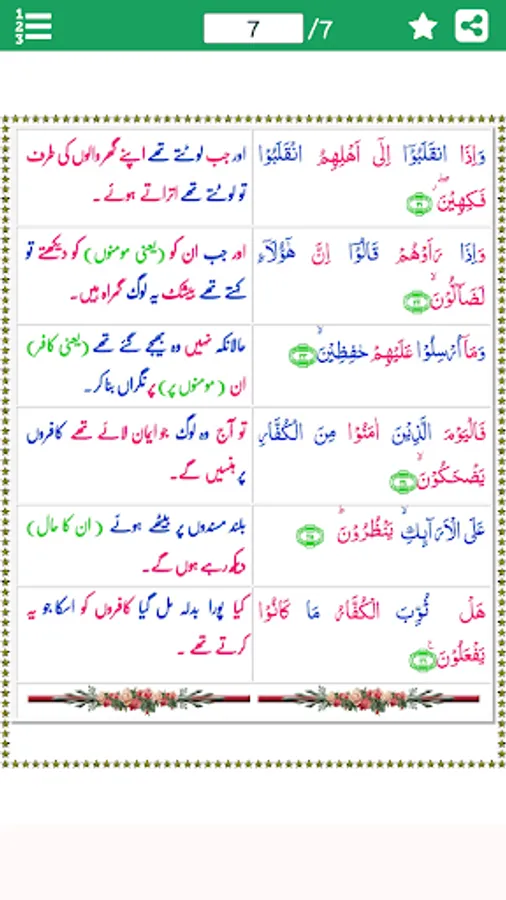 1
2
3
7 /7
وَاِذَا انْقَلَبُوْۤا اِلٰۤى اَهْلِهِمُ انْقَلَبُوْا
فَكِهِيْنَ ۖ ۗ ﴿۳۱﴾
اور جب لوٹتے تھے اپنے گھر والوں کی طرف
تو لوٹتے تھے اتراتے ہوئے ۔
وَاِذَا رَاَوْهُمْ قَالُوْۤا اِنَّ هٰٓؤُلَآءِ
لَضَآلُّوْنَ ۙ ﴿۳۲﴾
اور جب ان کو (یعنی مومنوں) کو دیکھتے تو
کہتے تھے بیشک یہ لوگ گمراہ ہیں۔
وَمَاۤ اُرْسِلُوْا عَلَيْهِمْ حٰفِظِيْنَ ۙ ﴿۳۳﴾
حالانکہ نہیں وہ بھیجے گئے تھے (یعنی کافر)
ان (مومنوں پر) پر نگراں بنا کر۔
فَالْيَوْمَ الَّذِيْنَ اٰمَنُوْا مِنَ الْكُفَّارِ
يَضْحَكُوْنَ ۙ ﴿۳۴﴾
تو آج وہ لوگ جو ایمان لائے تھے کافروں
پر ہنسیں گے۔
عَلَى الْاَرَآىِٕكِ ۙ يَنْظُرُوْنَ ؕ ﴿۳۵﴾
بلند مسندوں پر بیٹھے ہوئے (ان کا حال)
دیکھ رہے ہوں گے۔
هَلْ ثُوِّبَ الْكُفَّارُ مَا كَانُوْا
يَفْعَلُوْنَ ﴿۳۶﴾
کیا پورا بدلہ مل گیا کافروں کو اسکا جو یہ
کرتے تھے ۔